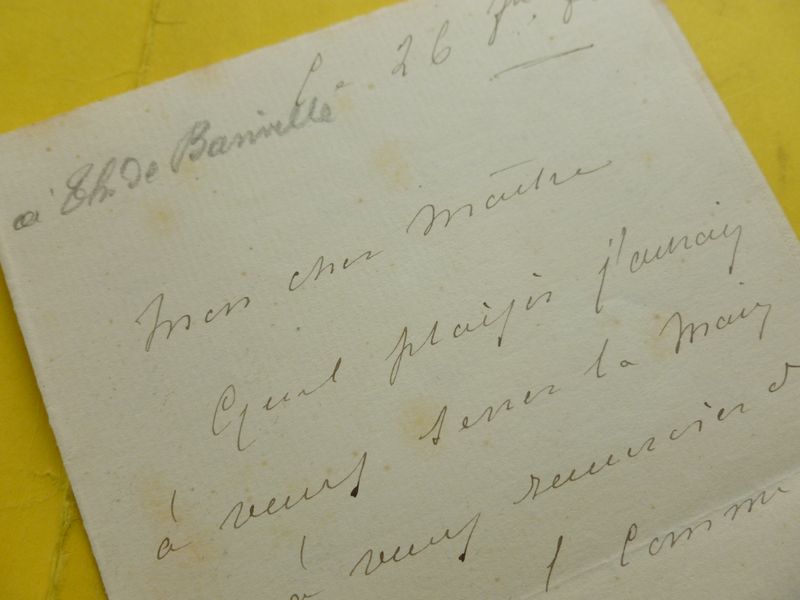 26
à Th. de Banville
Mon cher Maître
Quel plaisir j'aurais
à vous serrer la main
à vous remercier d
comme